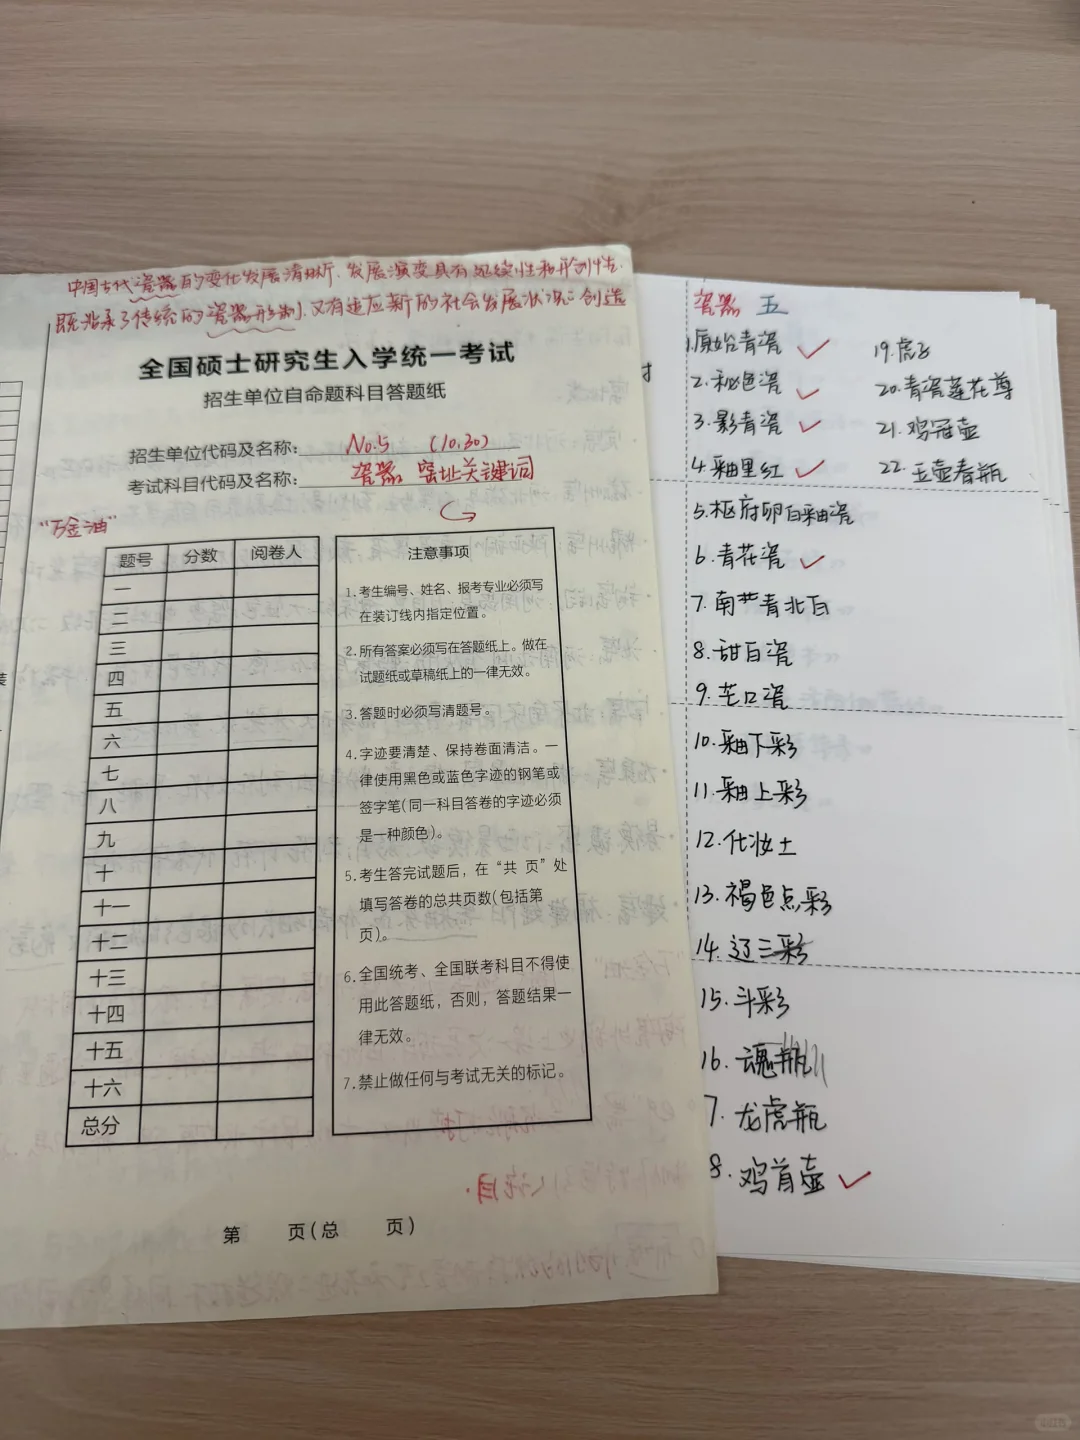 中国古代瓷器的变化发展清晰、发展演变具有延续性和
既沿承了传统的瓷器形制、又有适应新的社会发展状况 创造
全国硕士研究生入学统一考试
招生单位自命题科目答题纸
招生单位代码及名称: No.5 (10.30)
考试科目代码及名称: 瓷器 窑址关键词
"万金油"
题号 分数 阅卷人
一
二
三
四
五
六
七
八
九
十
十一
十二
十三
十四
十五
十六
总分
注意事项
1.考生编号、姓名、报考专业必须写
在装订线内指定位置。
2.所有答案必须写在答题纸上。做在
试题纸或草稿纸上的一律无效。
3.答题时必须写清题号。
4.字迹要清楚、保持卷面清洁。一
律使用黑色或蓝色字迹的钢笔或
签字笔(同一科目答卷的字迹必须
是一种颜色)。
5.考生答完试题后，在“共 页”处
填写答卷的总共页数(包括第
页)。
6.全国统考、全国联考科目不得使
用此答题纸，否则，答题结果一
律无效。
7.禁止做任何与考试无关的标记。
第 页(总 页)
瓷器 五
1.原始青瓷
2.秘色瓷
3.影青瓷
4.釉里红
5.枢府卵白釉瓷
6.青花瓷
7.南青北白
8.甜白瓷
9.芒口瓷
10.釉下彩
11.釉上彩
12.化妆土
13.褐色点彩
14.辽三彩
15.斗彩
16.魂瓶
7.龙虎瓶
8.鸡首壶
19.虎子
20.青瓷莲花尊
21.鸡冠壶
22.玉壶春瓶
小红书